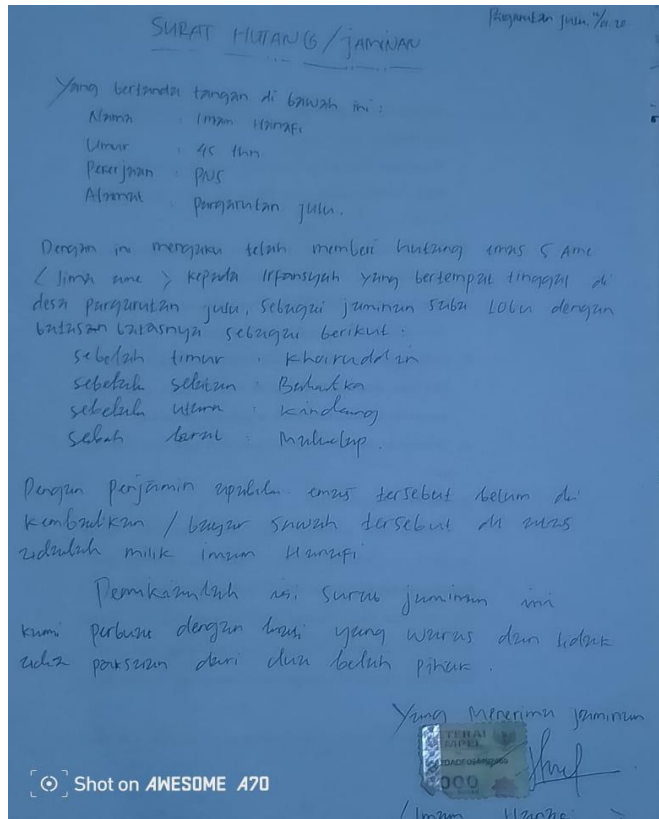 Pargarutan Julu, 11/01.20
SURAT HUTANG / JAMINAN
Yang bertanda tangan di bawah ini :
Nama : Imam Hanafi
Umur : 45 thn
Pekerjaan : PNS
Alamat : Pargarutan Julu.
Dengan ini mengaku telah memberi hutang emas 5 Ame
( lima ame ) kepada Irfansyah yang bertempat tinggal di
desa pargarutan julu, sebagai jaminan saba Lobu dengan
batasan batasnya sebagai berikut :
sebelah timur : Khairuddin
sebelah selatan :
sebelah utara : Kindang
sebah barat :
Dengan penjamin apabila emas tersebut belum di
kembalikan / bayar sawah tersebut di atas
adalah milik imam Hanafi
Demikianlah isi surat jaminan ini
kami perbuat dengan hati yang waras dan tidak
ada paksaan dari dua belah pihak.
Yang Menerima jaminan
TERAI
MPEL
000
( Imam Hanafi )
Shot on AWESOME A70